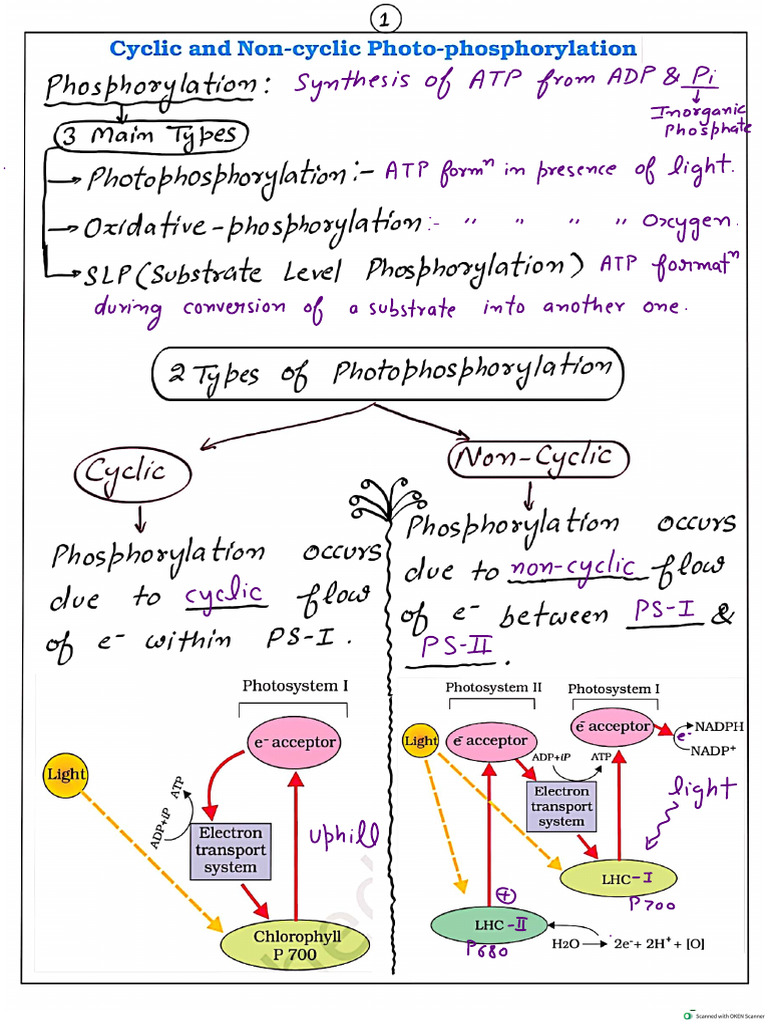 1
Cyclic and Non-cyclic Photo-phosphorylation
Phosphorylation: Synthesis of ATP from ADP & Pi
Inorganic
Phosphate
3 Main Types
Photophosphorylation:- ATP formⁿ in presence of light.
Oxidative-phosphorylation:- " " " " Oxygen.
SLP (Substrate Level Phosphorylation) ATP formatⁿ
during conversion of a substrate into another one.
2 Types of Photophosphorylation
Cyclic
Phosphorylation occurs
due to cyclic flow
of e⁻ within PS-I.
Non-Cyclic
Phosphorylation occurs
due to non-cyclic flow
of e⁻ between PS-I &
PS-II.
Photosystem I
e⁻ acceptor
Light
ADP+iP
ATP
Electron
transport
system
uphill
Chlorophyll
P 700
Photosystem II
Photosystem I
Light
e⁻ acceptor
e⁻ acceptor
e⁻
NADPH
NADP⁺
ADP+iP
ATP
Electron
transport
system
light
LHC-I
P700
+
LHC-II
P680
H2O → 2e⁻+ 2H⁺ + [O]
Scanned with OKEN Scanner